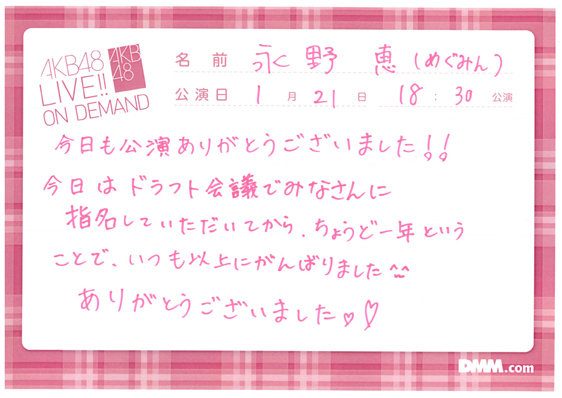 AKB48
LIVE!!
ON DEMAND
AKB
48
名前 永野 恵 (めぐみん)
公演日 1月21日 18:30 公演
今日も公演ありがとうございました!!
今日はドラフト会議でみなさんに
指名していただいてから、ちょうど一年という
ことで、いつも以上にがんばりました^^
ありがとうございました♡♡
DMM.com